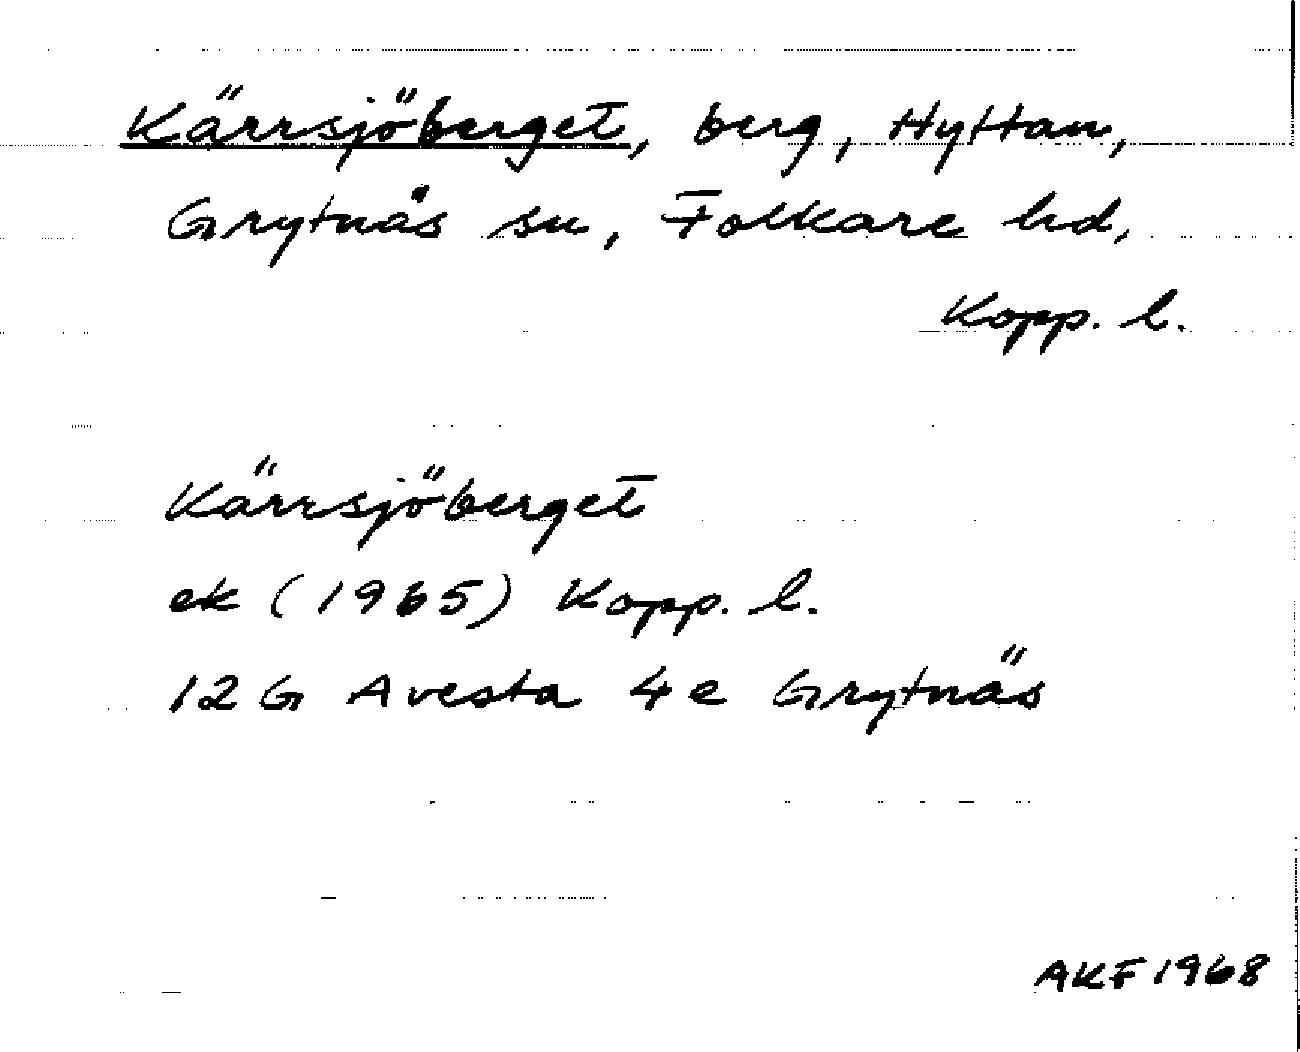 Kärrsjöberget, berg, Hyttan,
Grytnäs sn, Folkare hd,
Kopp. l.
Kärrsjöberget
ek (1965) Kopp. l.
12 G Avesta 4 e Grytnäs
AKF 1968